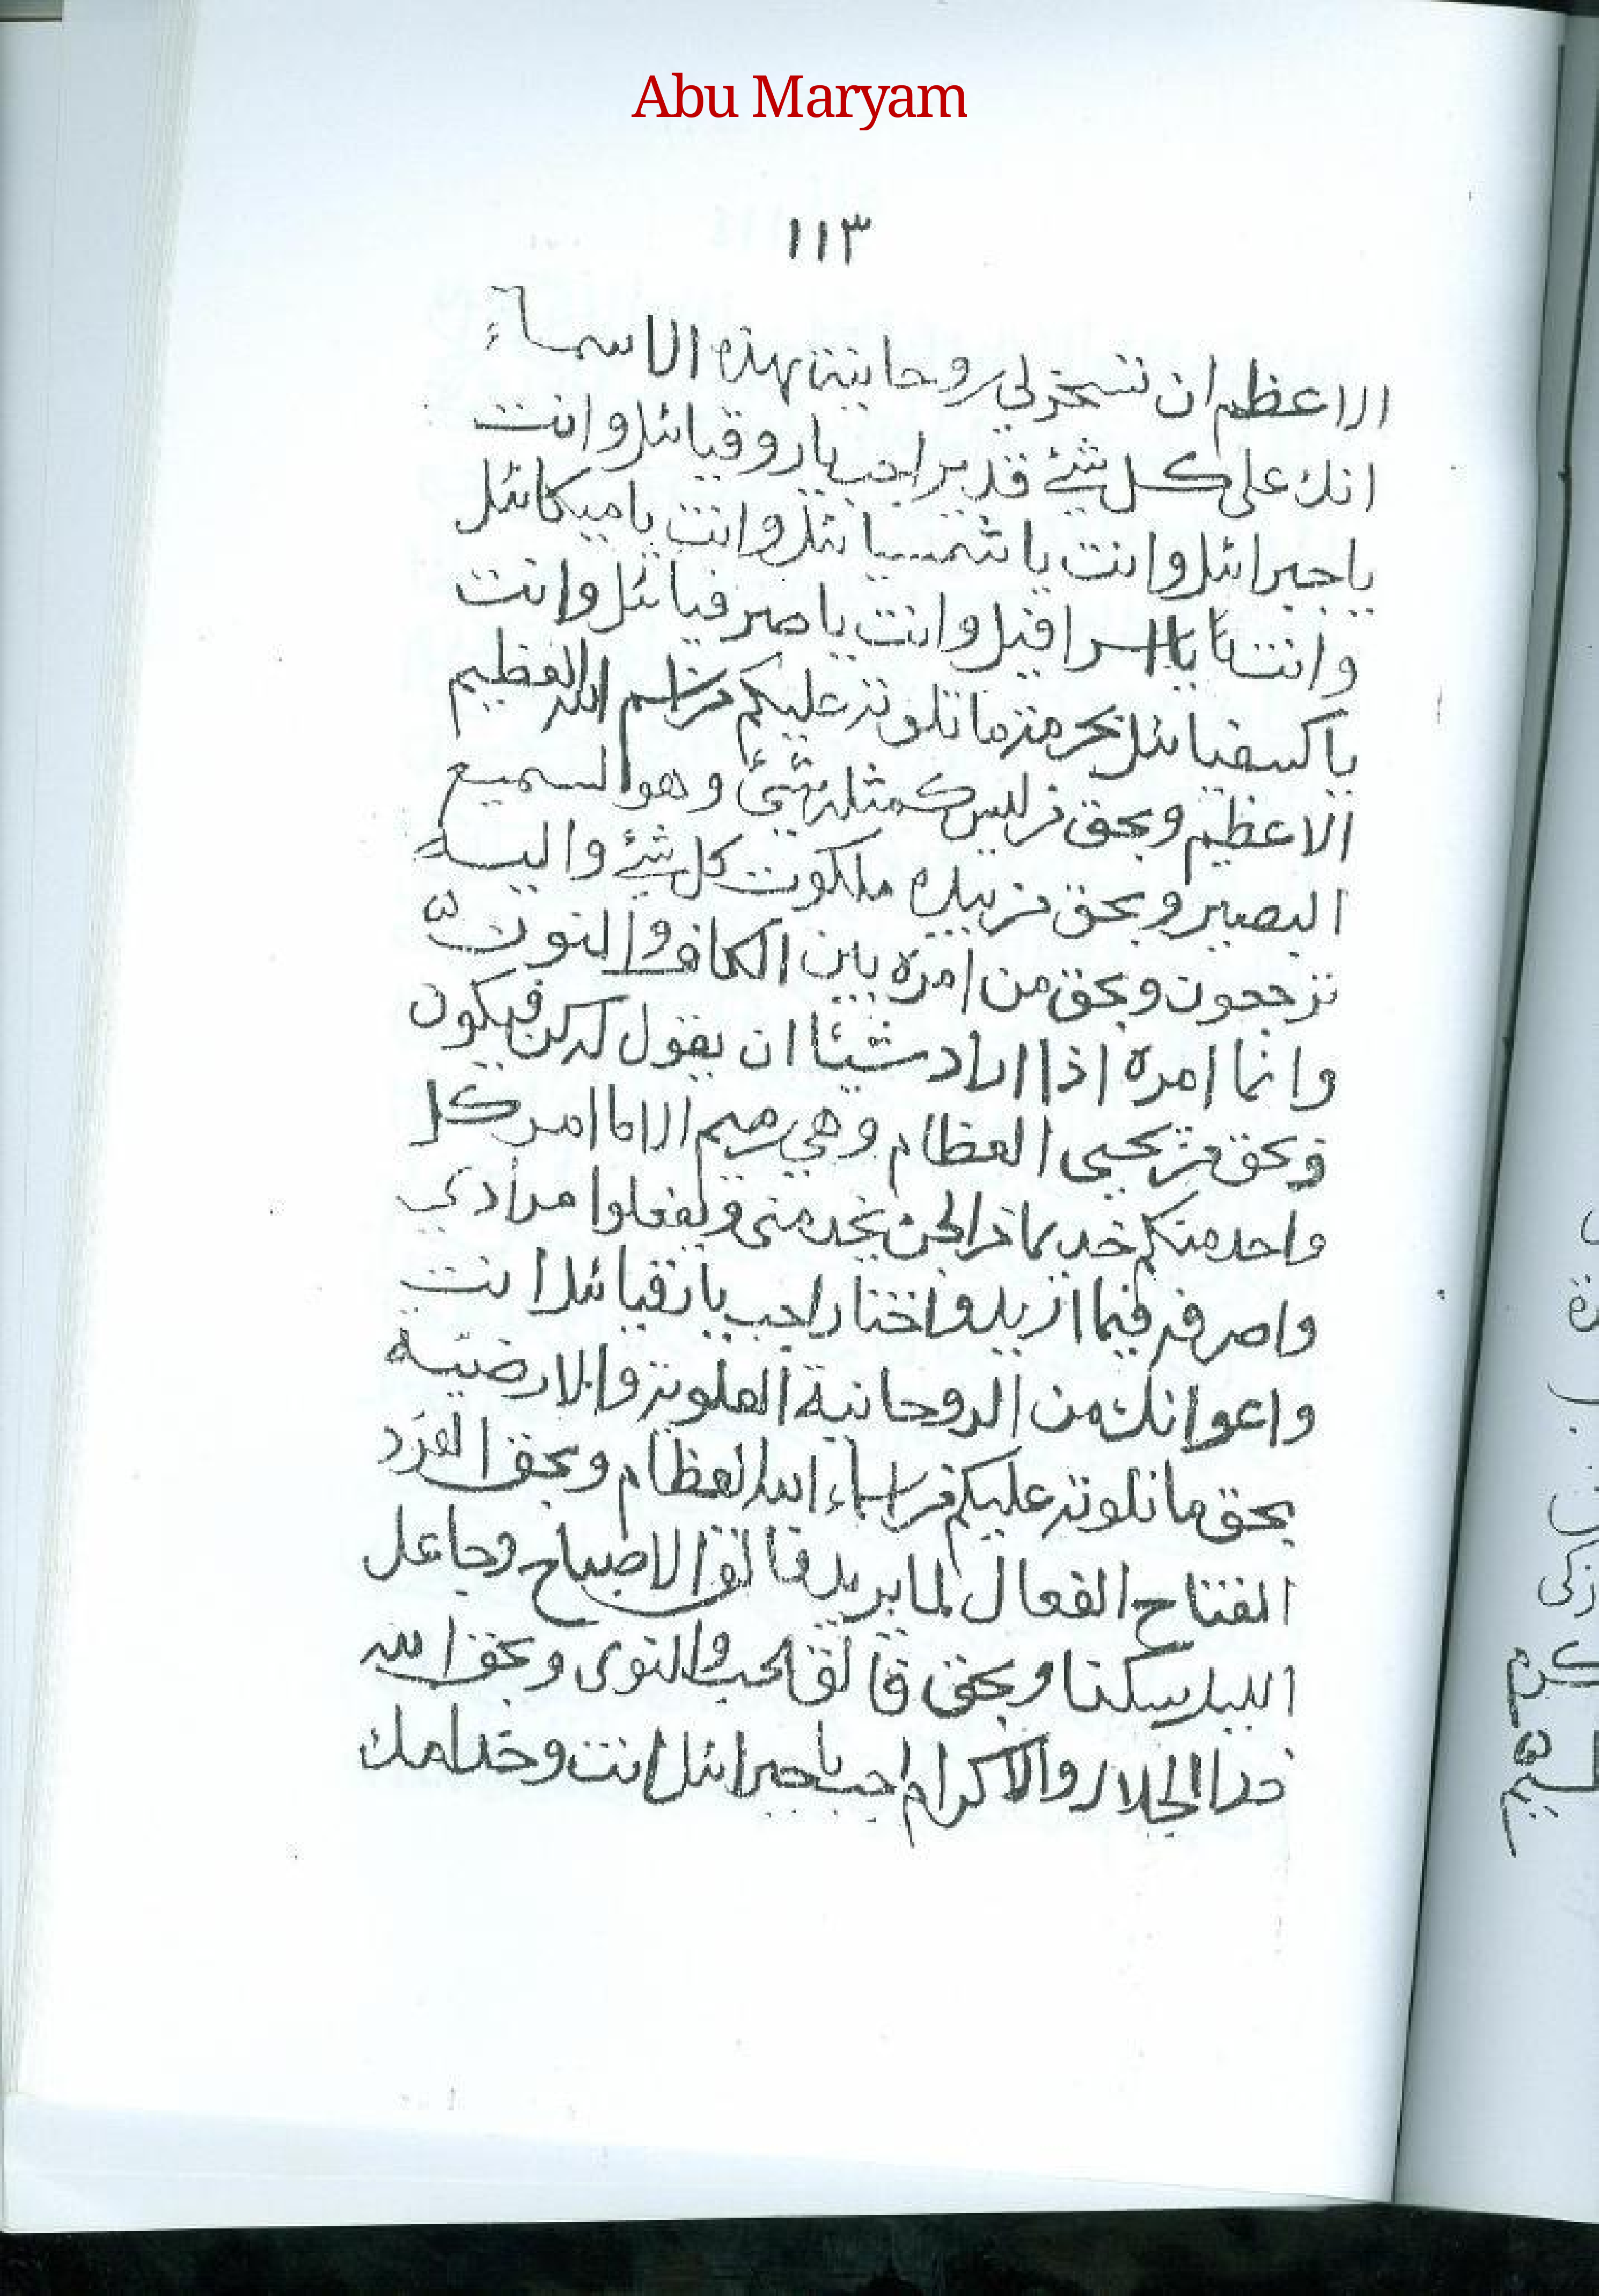 Abu Maryam
١١٣
الاعظم ان تسخر لي روحانية بهذه الاسماء
انك على كل شئ قدير اجب ياروقيائل وانت
ياجبرائل وانت يا شمسيائل وانت ياميكائل
وانت يا اسرافيل وانت ياصرفيائل وانت
ياكسفيائل بحرمة ماتلوته عليكم من اسم الله العظيم
الاعظيم وبحق من ليس كمثله شئ وهو السميع
البصير وبحق من بيده ملكوت كل شئ واليه
ترجعون وبحق من امره بين الكاف والنون
وانما امره اذا اراد شيئا ان يقول له كن فيكون
وبحق من يحيى العظام وهي رميم الا ما امر كل
واحد منكم خديما من الجن يخدمنى ويفعلوا مرادي
واصرفه فيما اريد واختار اجب يا رقيائل انت
واعوانك من الروحانية العلوية والارضية
بحق ماتلوته عليكم من اسماء الله العظام وبحق الفرد
الفتاح الفعال لما يريد فالق الاصباح وجاعل
الليل سكنا وبحق فالق الحب والنوى وبحق الله
ذا الجلال والاكرام اجب ياجبرائل انت وخدامك